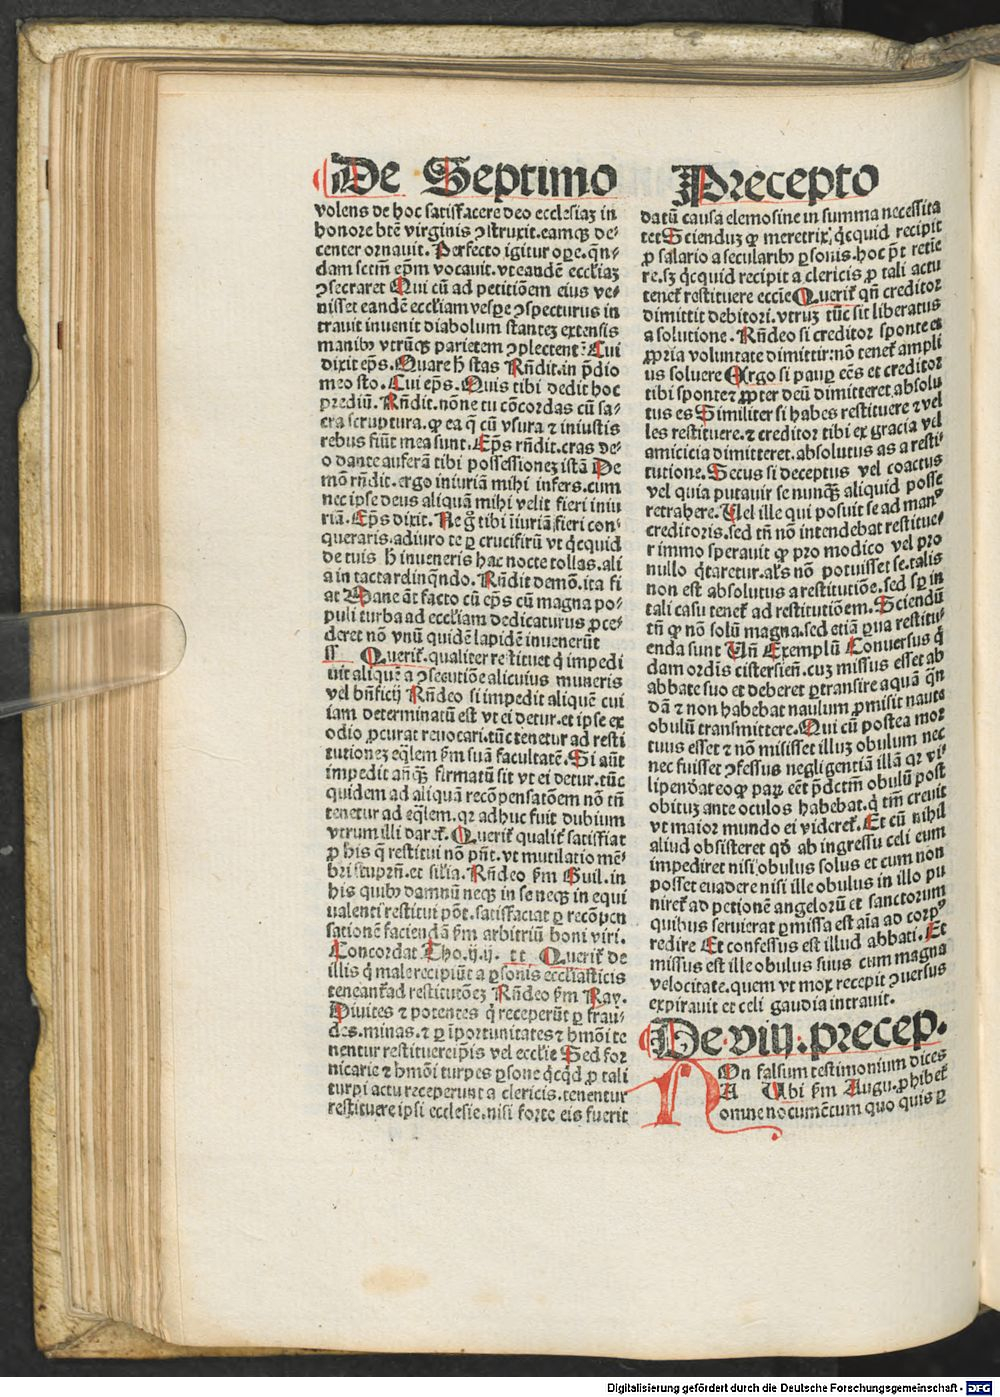 De Septimo Precepto
volens de hoc satisfacere deo ecclesiaʒ in
honore btē virginis ↄstruxit. eamqꝫ de⸗
center ornauit. Perfecto igitur oꝑe. q̄n⸗
dam sctm̄ ep̄m vocauit. vt eandē eccl̄iaʒ
ↄsecraret Qui cū ad petitiōem eius ve⸗
nisset eandē eccl̄iam vesꝑe ↄspecturus in
trauit inuenit diabolum stanteʒ extensis
manibꝰ vtrūqꝫ parietem ↄplectent̄: Cui
dixit ep̄s. Quare h̄ stas Rn̄dit. in p̄dio
meo sto. Cui ep̄s. Quis tibi dedit hoc
prediū. Rn̄dit. nōne tu cōcordas cū sa⸗
cra scriptura. ꝙ ea q̄ cū vsura ⁊ iniustis
rebus fiūt mea sunt. Ep̄s rn̄dit. cras de⸗
o dante auferā tibi possessioneʒ istā De
mō rn̄dit. ergo iniuriā mihi infers. cum
nec ipse deus aliquā mihi velit fieri iniu
riā. Ep̄s dixit. Ne g̊ tibi iiuriā fieri con⸗
queraris. adiuro te ꝑ crucifixū vt q̇cquid
de tuis h̄ inueneris hac nocte tollas. ali
a in tacta relinq̄ndo. Rn̄dit demō. ita fi
at Mane āt facto cū ep̄s cū magna po⸗
puli turba ad eccl̄iam dedicaturus ꝓce⸗
deret nō vnū quidē lapidē inuenerūt
ss Querit̄. qualiter restituet q̇ impedi
uit aliquē a ↄsecutiōe alicuius muneris
vel bn̄ficij Rn̄deo si impedit aliquē cui
iam determinatū est vt ei detur. et ipse ex
odio ꝓcurat reuocari. tūc tenetur ad resti
tutioneʒ eq̄lem ẜm suā facultatē. Si aūt
impedit añqꝫ firmatū sit vt ei detur. tūc
quidem ad aliquā recōpensatōem nō tn̄
tenetur ad eq̄lem. qꝛ adhuc fuit dubium
vtrum illi daret̄. Querit̄ qualit̄ satisfiat
ꝓ his q̄ restitui nō pn̄t. vt mutilatio mē⸗
bri stuprū. et sil̄ia. Rn̄deo ẜm Guil. in
his quibꝰ damnū neqꝫ in se neqꝫ in equi
ualenti restitui pōt. satisfaciat ꝑ recōpen
sationē faciendā ẜm arbitriū boni viri.
Concordat Tho. ij. ij. tt Querit̄ de
illis q̇ male recipiūt a ꝑsonis eccl̄iasticis
teneant̄ ad restitutōeʒ Rn̄deo ẜm Ray.
Diuites ⁊ potentes q̇ receperūt ꝑ frau⸗
des. minas. ⁊ ꝑ īportunitates ⁊ hmōi te
nentur restituere ip̄is vel eccl̄ie Sed for
nicarie ⁊ hmōi turpes ꝑsone q̇cq̇d ꝓ tali
turpi actu receperunt a clericis. tenentur
restituere ipsi ecclesie. nisi forte eis fuerit
datū causa elemosine in summa necessita
te tt Sciendum ꝙ meretrix. q̇cquid recipit
ꝓ salario a secularibꝰ ꝑsonis. hoc p̄t retie
re. sʒ q̇cquid recipit a clericis ꝓ tali actu
tenet̄ restituere eccīe Querit̄ qn̄ creditor
dimittit debitori. vtruʒ tūc sit liberatus
a solutione. Rn̄deo si creditor sponte et
ꝓpria voluntate dimittit: nō tenet̄ ampli
us soluere Ergo si pauꝑ eēs et creditor
tibi sponte ⁊ ꝓpter deū dimitteret. absolu
tus es Similiter si habes restituere ⁊ vel
les restituere. ⁊ creditor tibi ex gracia vel
amicicia dimitteret. absolutus as a resti⸗
tutione. Secus si deceptus vel coactus
vel quia putauit se nunqꝫ aliquid posse
retrahere. Uel ille qui posuit se ad manꝰ
creditoris. sed tn̄ nō intendebat restitue⸗
r immo sperauit ꝙ pro modico vel pro
nullo q̇taretur. al̄s nō potuisset se. talis
non est absolutus a restitutiōe. sed sꝑ in
tali casu tenet̄ ad restitutiōem. Sciendū
tn̄ ꝙ nō solū magna. sed etiā ꝑua restitu⸗
enda sunt Un̄ Exemplū Conuersus q̇
dam ordīs cistersien̄. cuʒ missus esset ab
abbate suo et deberet ꝑtransire aquā q̄n
dā ⁊ non habebat naulum ꝓmisit naute
obulū transmittere. Qui cū postea mor
tuus esset ⁊ nō misisset illuʒ obulum nec
nec fuisset ↄfessus negligentiā illā qꝛ vi⸗
lipendeat eo ꝙ paꝝ eēt p̄dctm̄ obulū post
obituʒ ante oculos habebat. q̇ tm̄ creuit
vt maior mundo ei videret̄. Et cū nihil
aliud obsisteret qđ ab ingressu celi eum
impediret nisi obulus solus et cum non
posset euadere nisi ille obulus in illo pu
niret̄ ad petionē angeloꝝ et sanctorum
quibus seruierat ꝑmissa est aīa ad corpꝰ
redire Et confessus est illud abbati. Et
missus est ille obulus suus cum magna
velocitate. quem vt mox recepit ↄuersus
expirauit et celi gaudia intrauit.
De viij. precep.
NOn falsum testimonium dices
A Ubi ẜm Augu. ꝓhibet̄
omne nocumētum quo quis ꝑ
Digitalisierung gefördert durch die Deutsche Forschungsgemeinschaft - DFG